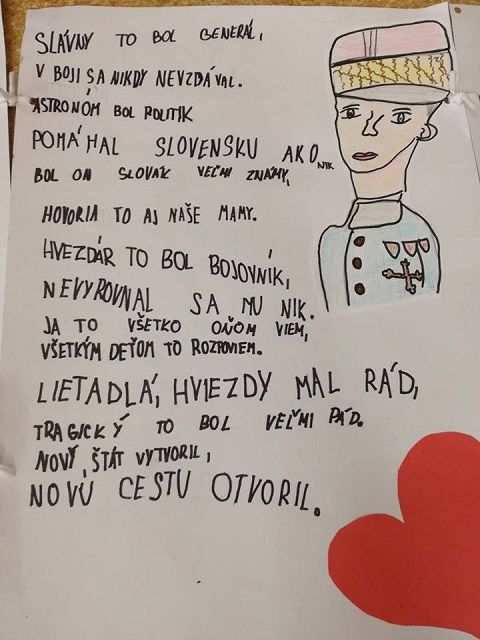 SLÁVNY TO BOL GENERÁL,
V BOJI SA NIKDY NEVZDÁVAL.
ASTRONÓM BOL POLITIK
POMÁHAL SLOVENSKU AKO NIK
BOL ON SLOVÁK VEĽMI ZNÁMY,
HOVORIA TO AJ NAŠE MAMY.
HVEZDÁR TO BOL BOJOVNÍK,
NEVYROVNAL SA MU NIK.
JA TO VŠETKO OŇOM VIEM,
VŠETKÝM DEŤOM TO ROZPOVIEM.
LIETADLÁ, HVIEZDY MAL RÁD,
TRAGICKÝ TO BOL VEĽMI PÁD.
NOVÝ ŠTÁT VYTVORIL,
NOVÚ CESTU OTVORIL.